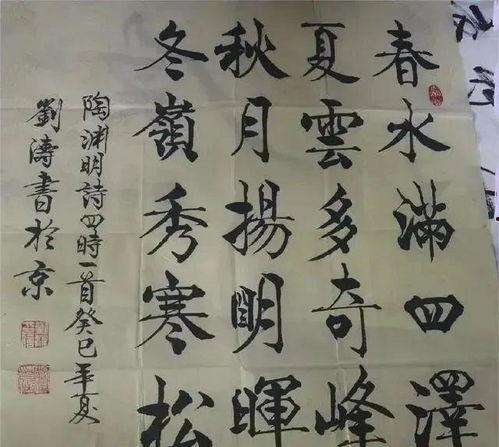 春水滿四澤
夏雲多奇峰
秋月揚明暉
冬嶺秀寒松
陶淵明詩四時一首癸巳年夏
劉濤書於京